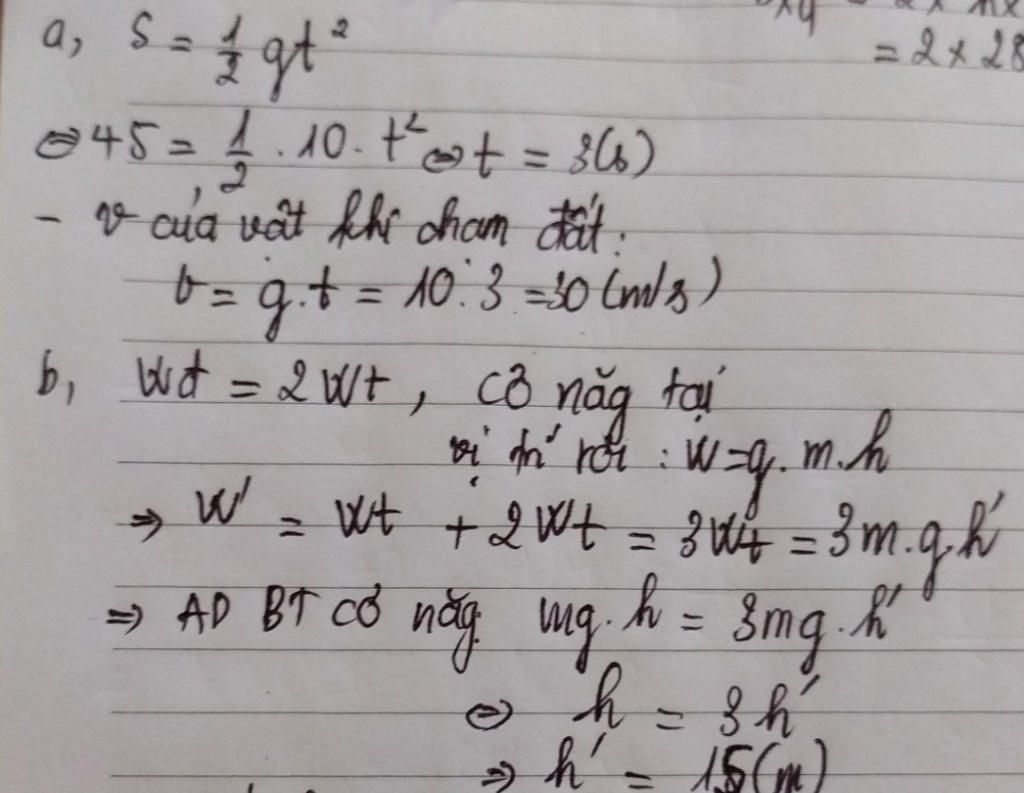 = 2 × 28
a, S = 1/2 gt²
⇔ 45 = 1/2 . 10 . t² ⇔ t = 3(s)
- v của vật khi chạm đất:
v = g.t = 10.3 = 30 (m/s)
b, Wđ = 2Wt, cơ năg tại
vị trí rơi : W = g.m.h
⇒ W' = Wt + 2Wt = 3Wt = 3m.g.h'
⇒ AD BT cơ năg mg.h = 3mg.h'
⇔ h = 3h'
⇒ h' = 15(m)